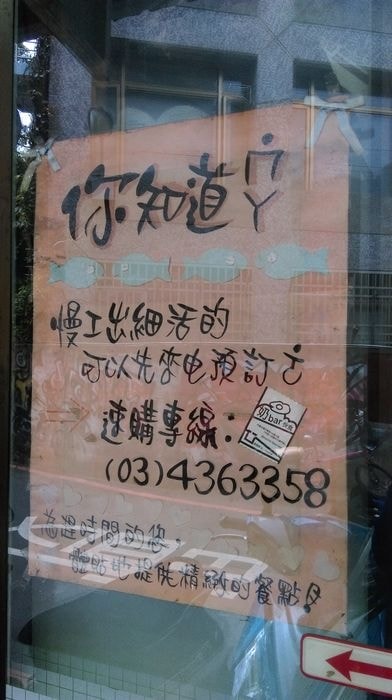 你知道ㄇㄚ
慢工出細活的
可以先來电預訂ㄛ
速購專線:
奶bar
(03)4363358
為趕時間的您,
體貼地提供精緻的餐點!